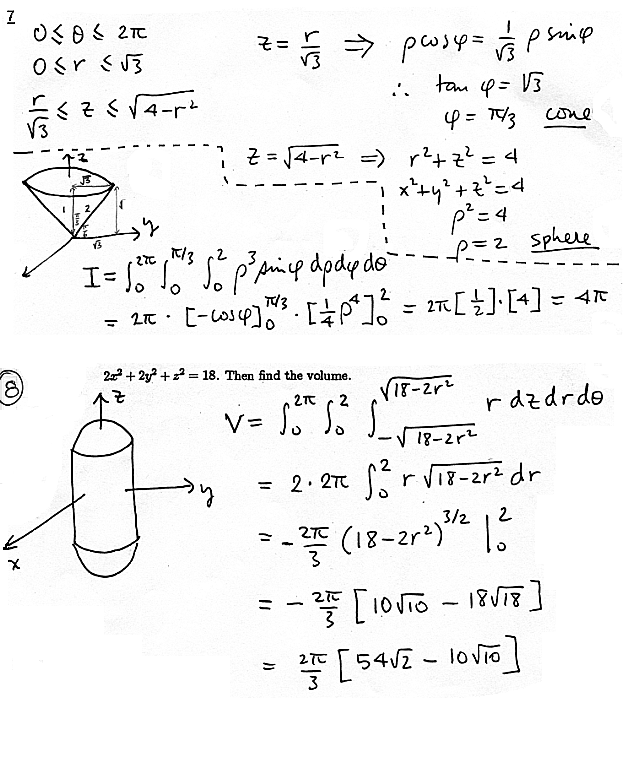 7
0 ≤ θ ≤ 2π
0 ≤ r ≤ √3
r/√3 ≤ z ≤ √(4-r²)
z = r/√3 ⇒ ρcosφ = 1/√3 ρ sinφ
∴ tan φ = √3
φ = π/3 cone
z = √(4-r²) ⇒ r² + z² = 4
x² + y² + z² = 4
ρ² = 4
ρ = 2 sphere
z
√3
1
2
π/3
√3
y
I = ∫₀^{2π} ∫₀^{π/3} ∫₀² ρ³ sinφ dρdφdθ
= 2π · [-cosφ]₀^{π/3} · [1/4 ρ⁴]₀² = 2π[1/2]·[4] = 4π
8
2x² + 2y² + z² = 18. Then find the volume.
z
y
x
V = ∫₀^{2π} ∫₀² ∫_{-√(18-2r²)}^{√(18-2r²)} r dzdrdθ
= 2·2π ∫₀² r √(18-2r²) dr
= -2π/3 (18-2r²)^{3/2} |₀²
= -2π/3 [10√10 - 18√18]
= 2π/3 [54√2 - 10√10]